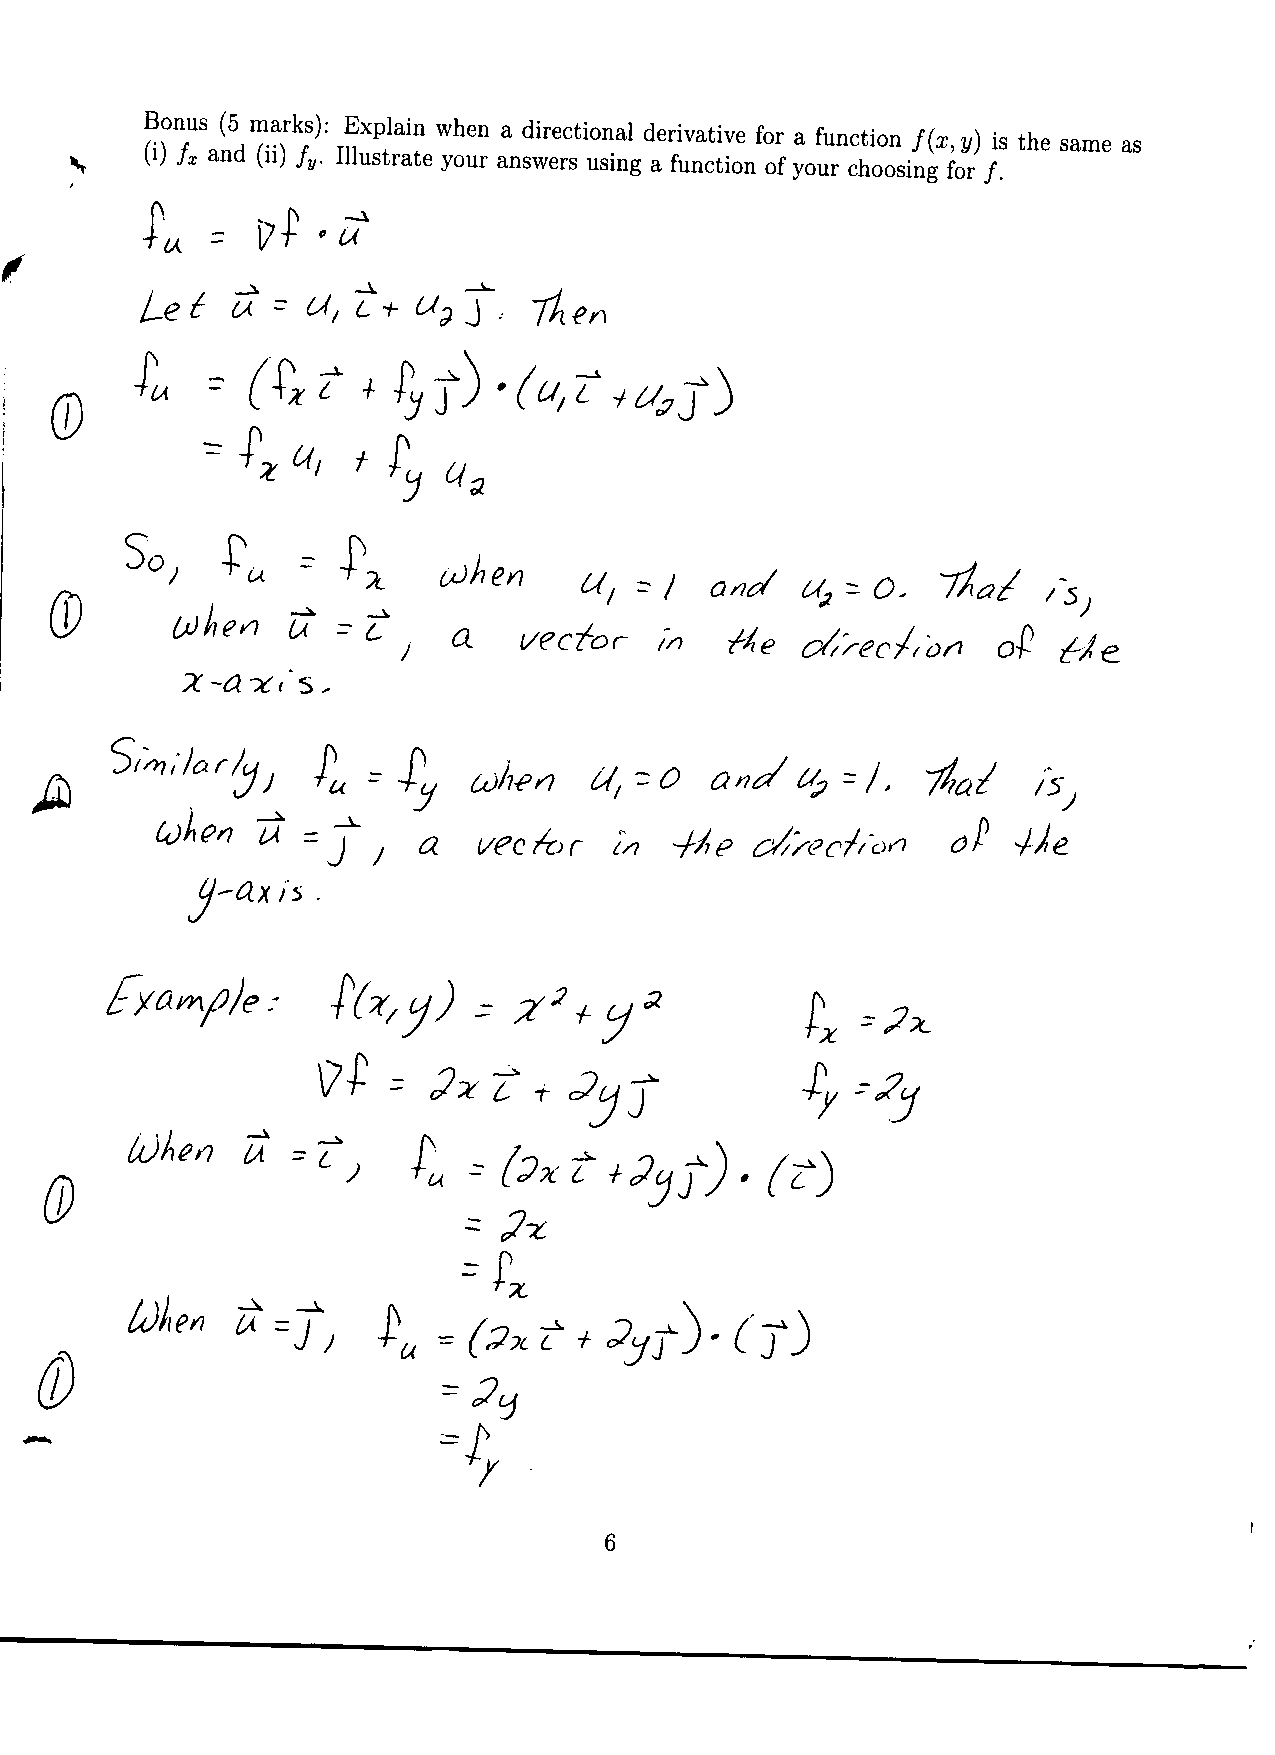 Bonus (5 marks): Explain when a directional derivative for a function f(x, y) is the same as
(i) fₓ and (ii) f_y. Illustrate your answers using a function of your choosing for f.
f_u = ∇f · u⃗
Let u⃗ = u₁ i⃗ + u₂ j⃗. Then
f_u = (fₓ i⃗ + f_y j⃗) · (u₁ i⃗ + u₂ j⃗)
①
= fₓ u₁ + f_y u₂
So, f_u = fₓ when u₁ = 1 and u₂ = 0. That is,
① when u⃗ = i⃗, a vector in the direction of the
x-axis.
Similarly, f_u = f_y when u₁ = 0 and u₂ = 1. That is,
① when u⃗ = j⃗, a vector in the direction of the
y-axis.
Example: f(x, y) = x² + y² fₓ = 2x
∇f = 2x i⃗ + 2y j⃗ f_y = 2y
When u⃗ = i⃗, f_u = (2x i⃗ + 2y j⃗) · (i⃗)
① = 2x
= fₓ
When u⃗ = j⃗, f_u = (2x i⃗ + 2y j⃗) · (j⃗)
① = 2y
= f_y
6